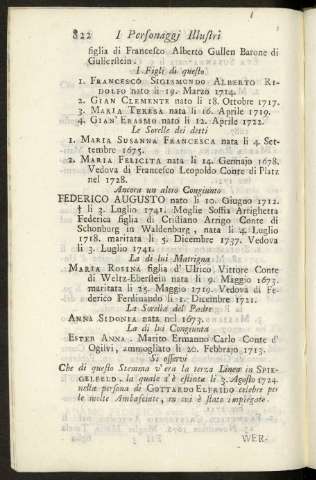 822 I Personaggj Illustri
figlia di Francesco Alberto Gullen Barone di
Gullerstein.
I Figli di questo
1. FRANCESCO SIGISMONDO ALBERTO RI-
DOLFO nato li 19. Marzo 1714.
2. GIAN CLEMENTE nato li 18. Ottobre 1717.
3. MARIA TERESA nata li 16. Aprile 1719.
4. GIAN' ERASMO nato li 12. Aprile 1722.
Le Sorelle dei detti
1. MARIA SUSANNA FRANCESCA nata li 4. Set-
tembre 1675.
2. MARIA FELICITA nata li 14. Gennajo 1678.
Vedova di Francesco Leopoldo Conte di Platz
nel 1728.
Ancora un altro Congiunto
FEDERICO AUGUSTO nato li 10. Giugno 1712.
† li 3. Luglio 1741. Moglie Soffia Arrighetta
Federica figlia di Cristiano Arrigo Conte di
Schonburg in Waldenburg, nata li 4. Luglio
1718. maritata li 5. Dicembre 1737. Vedova
li 3. Luglio 1741.
La di lui Matrigna
MARIA ROSINA figlia d' Ulrico Vittore Conte
di Weltz-Eberstein nata li 9. Maggio 1673.
maritata li 25. Maggio 1719. Vedova di Fe-
derico Ferdinando li 1. Dicembre 1721.
La Sorella del Padre
ANNA SIDONIA nata nel 1673.
La di lui Congiunta
ESTER ANNA. Marito Ermanno Carlo Conte d'
Ogilvi, ammogliato li 20. Febbrajo 1713.
Si osservi
Che di questo Stemma v'era la terza Linea in SPIE-
GELFELD, la quale s'è estinta li 3. Agosto 1724.
nella persona di GOTTARDO ELFRIDO celebre per
le molte Ambasciate, in cui è stato impiegato.
WER-